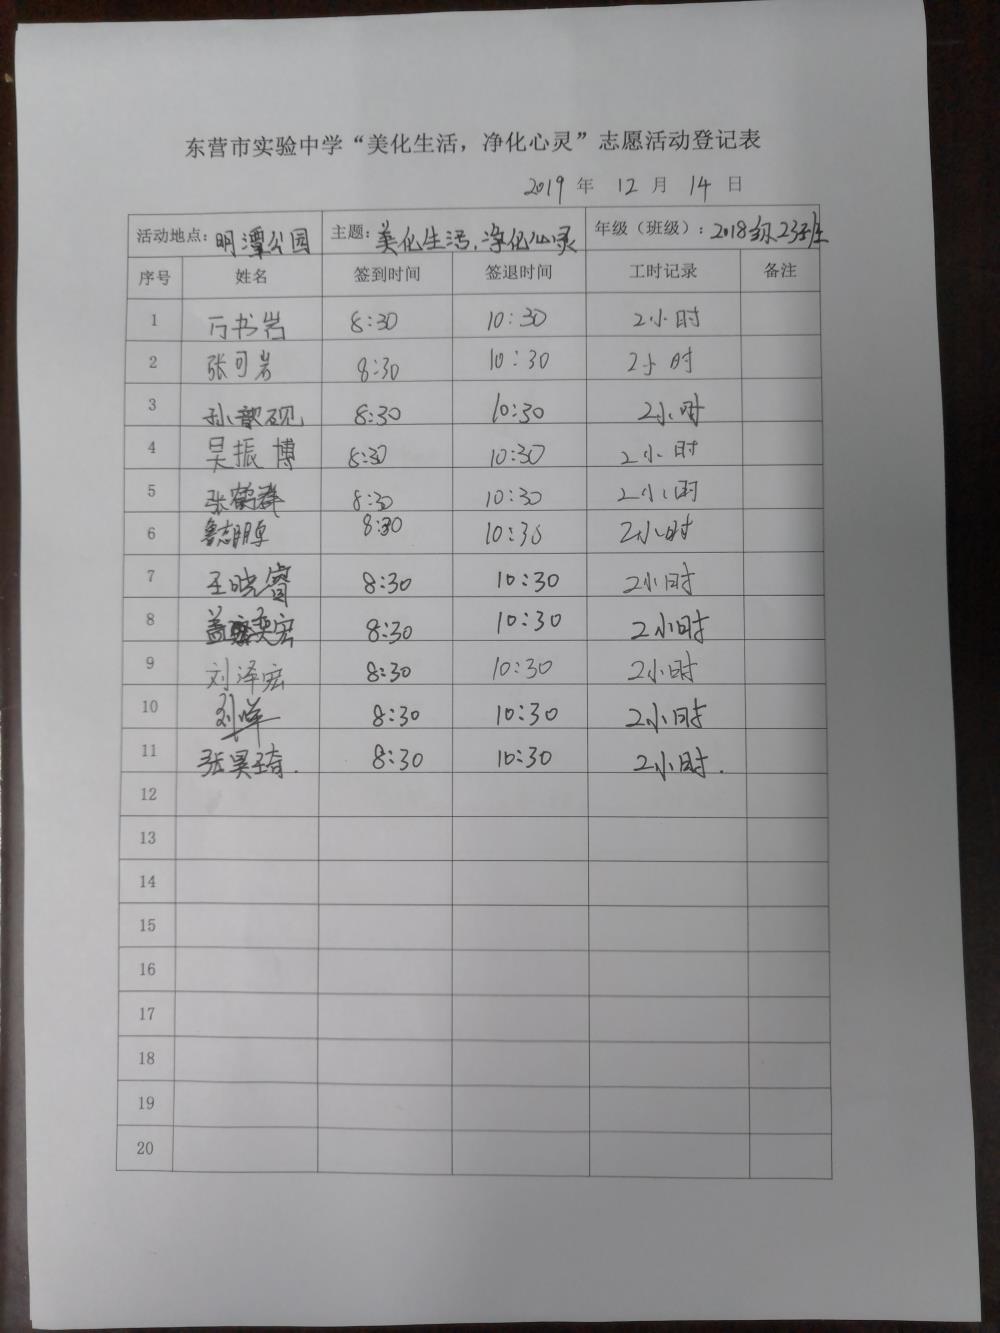 东营市实验中学“美化生活，净化心灵”志愿活动登记表
2019 年 12 月 14 日
活动地点：明潭公园 主题：美化生活，净化心灵 年级（班级）：2018级23班
序号 姓名 签到时间 签退时间 工时记录 备注
1 万书岩 8:30 10:30 2小时
2 张可岩 8:30 10:30 2小时
3 孙歆砚 8:30 10:30 2小时
4 吴振博 8:30 10:30 2小时
5 张鹤群 8:30 10:30 2小时
6 鲁志鹏 8:30 10:30 2小时
7 王晓睿 8:30 10:30 2小时
8 盖奕宏 8:30 10:30 2小时
9 刘泽宏 8:30 10:30 2小时
10 刘洋 8:30 10:30 2小时
11 张昊琦. 8:30 10:30 2小时.
12
13
14
15
16
17
18
19
20